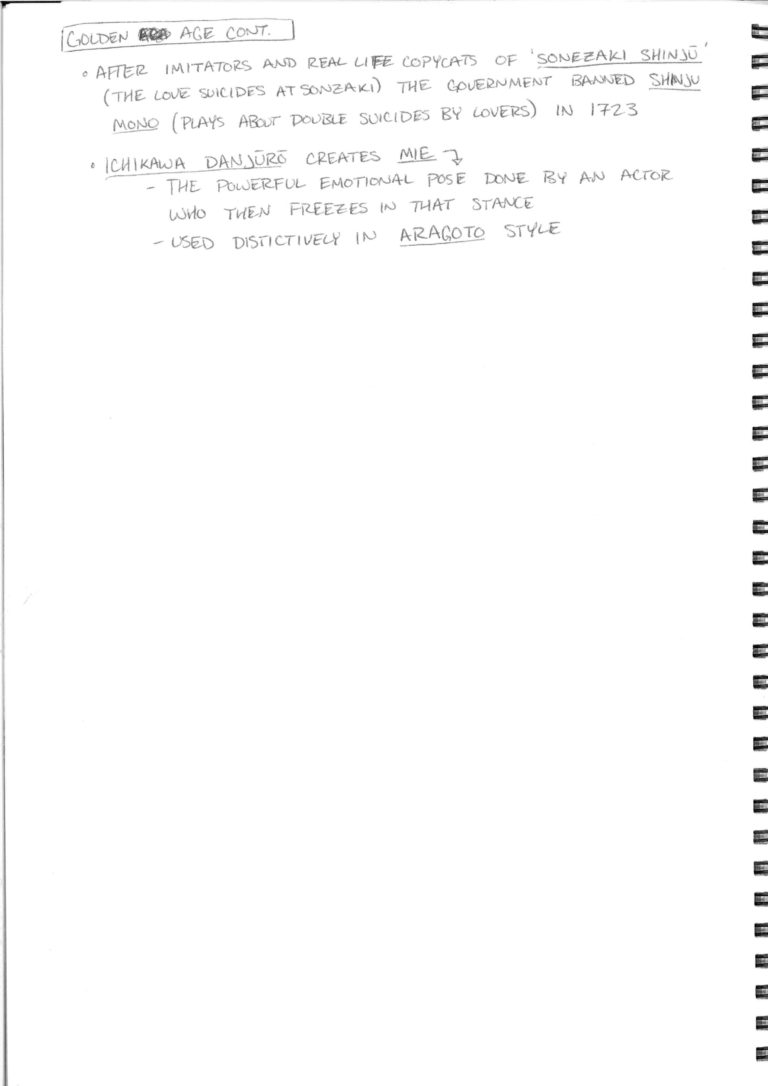 GOLDEN AGE CONT.
• AFTER IMITATORS AND REAL LIFE COPYCATS OF 'SONEZAKI SHINJŪ'
(THE LOVE SUICIDES AT SONZAKI) THE GOVERNMENT BANNED SHINJU
MONO (PLAYS ABOUT DOUBLE SUICIDES BY LOVERS) IN 1723
• ICHIKAWA DANJŪRŌ CREATES MIE ↴
- THE POWERFUL EMOTIONAL POSE DONE BY AN ACTOR
WHO THEN FREEZES IN THAT STANCE
- USED DISTICTIVELY IN ARAGOTO STYLE